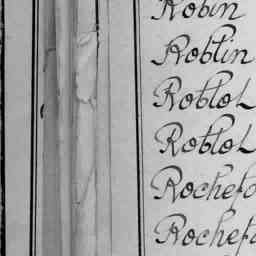 Robin
Roblin
Roblot
Roblot
Rochefo
Rochefo